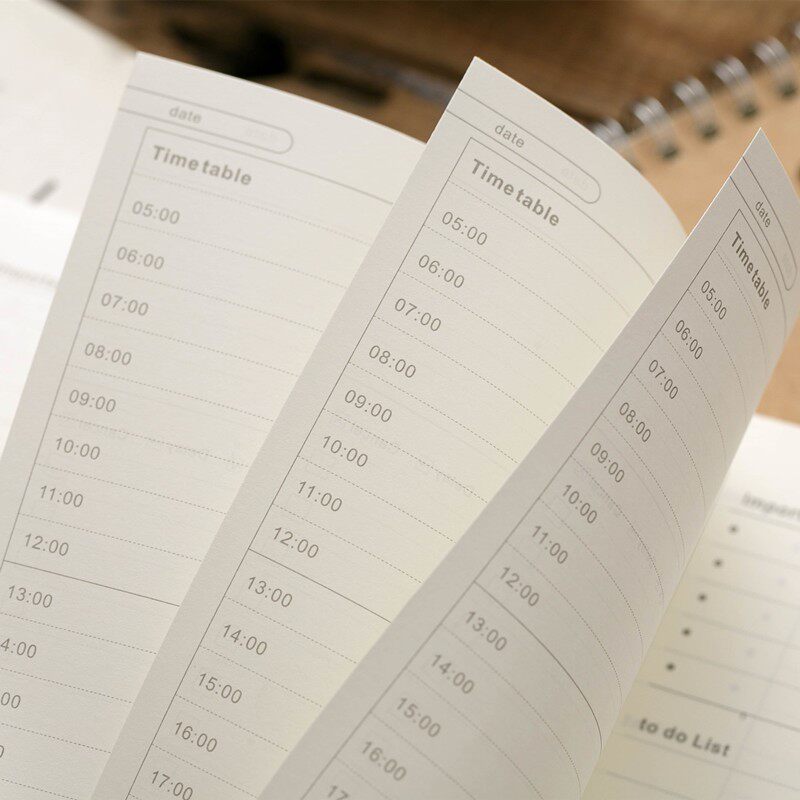 date
Time table
05:00
06:00
07:00
08:00
09:00
10:00
11:00
12:00
13:00
4:00
00
date
Time table
05:00
06:00
07:00
08:00
09:00
10:00
11:00
12:00
13:00
14:00
15:00
16:00
17:00
date
Time table
05:00
06:00
07:00
08:00
09:00
10:00
11:00
12:00
13:00
14:00
15:00
16:00
17
Import
to do List